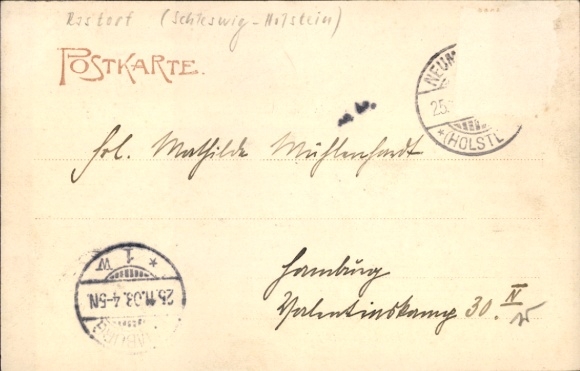 Rastorf (Schleswig-Holstein)
POSTKARTE.
NEUM
25.
*(HOLST)
Frl. Mathilde Mühlenhardt
* 1 W
25.11.03.4-5N.
Hamburg
Valentinskamp 30. IV